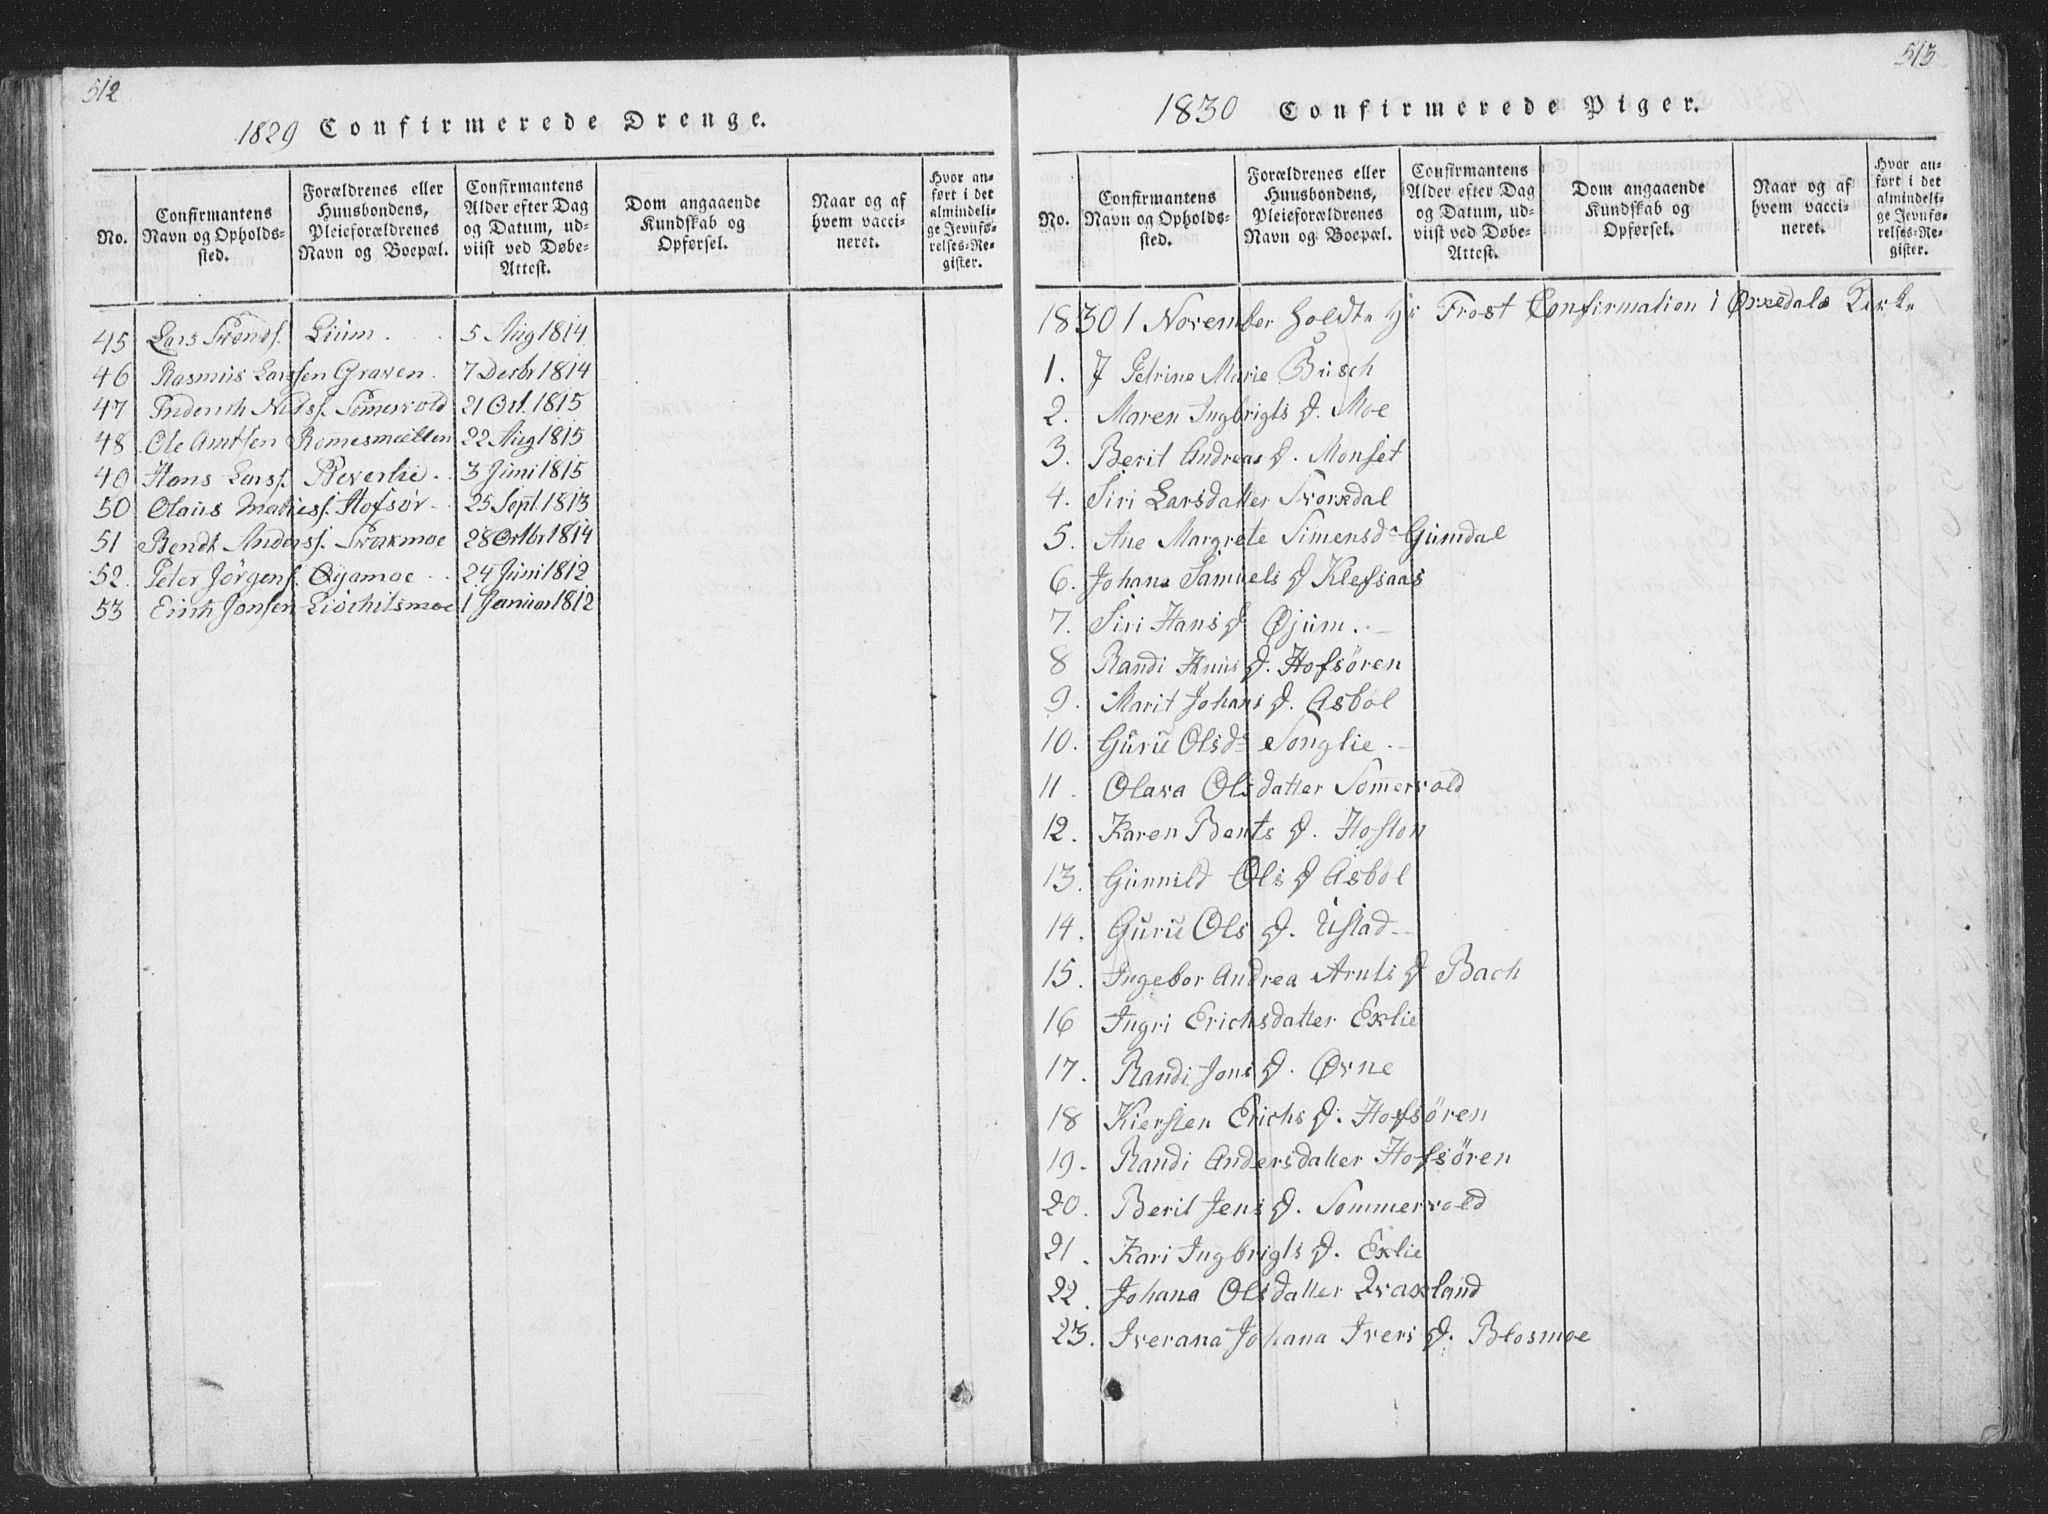 512
1829 Confirmerede Drenge.
No. Confirmantens Navn og Opholds-sted. Forældrenes eller Huusbondens, Pleieforældrenes Navn og Boepæl. Confirmantens Alder efter Dag og Datum, ud-viist ved Døbe-Attest. Dom angaaende Kundskab og Opførsel. Naar og af hvem vacci-neret. Hvor an-ført i det almindeli-ge Jevnfø-relses-Re-gister.
45 Lars Tronds. Lium. 5 Aug 1814
46 Rasmus Larssen Graven. 7 Decbr 1814
47 Friderich Nilss. Somervold 21 Oct. 1815
48 Ole Arntsen Romesmoellen 22 Aug 1815
40 Hans Larss. Beverlie. 3 Juni 1815
50 Olaus Matiess. Hofsør 25 Sept. 1813
51 Bendt Anderss. Svakmoe 28 Octbr 1814
52. Peter Jørgens. Øyamoe 24 Juni 1812
53 Erich Jonsen 1 Januar 1812
513
1830 Confirmerede Piger.
No. Confirmantens Navn og Opholds-sted. Forældrenes eller Huusbondens, Pleieforældrenes Navn og Boepæl. Confirmantens Alder efter Dag og Datum, ud-viist ved Døbe-Attest. Dom angaaende Kundskab og Opførsel. Naar og af hvem vacci-neret. Hvor an-ført i det almindeli-ge Jevnfø-relses-Re-gister.
1830 1 November holdte Hr Frost Confirmation i Ørkedals Kirke
1. J Petrine Marie Busch
2. Maren Ingbrigts d. Moe
3. Berit Andreas d. Monset
4. Siri Larsdatter Svorkdal
5. Ane Margrete Simensd. Gumdal
6. Johana Samuels d Klefsaas
7. Siri Hans d Øjum.
8 Randi Knus d. Hofsören
9. Marit Johans d. Asböl
10. Gurü Olsd. Songlie.
11. Olava Olsdatter Somervold
12. Karen Bents d. Hoston
13. Gunnild Ols d Asböl
14. Gurü Ols d. Ustad
15. Ingebor Andrea Arnts d Bach
16 Ingri Erichsdatter Exlie
17. Randi Jons d. Øvne
18 Kiersten Erichs d. Hofsören
19. Randi Andersdatter Hofsören
20. Berit Jens d. Sommervold
21. Kari Ingbrigts d. Exlie
22. Johana Olsdatter Qvaxland
23. Iverana Johana Ivers d. Blosmoe